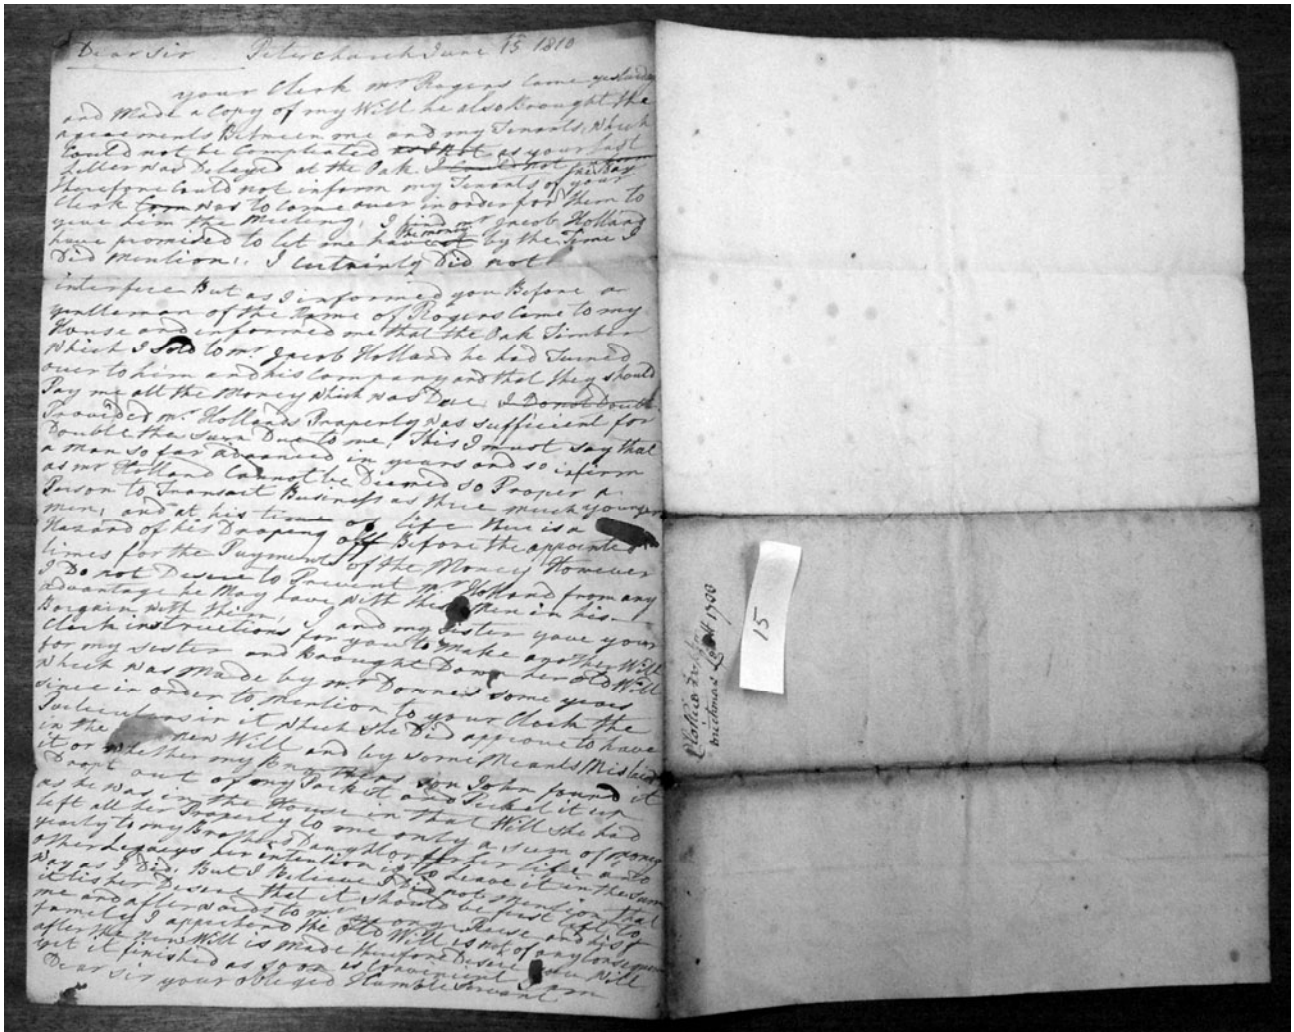 Dear Sir Peterchurch June 15 1810
your Clerk Mr Rogers Came yesterday
and Made a Copy of my Will he also Brought the
agreements Between me and my Tenants, which
Could not be Compleated as your last
Letter was Delayed at the Oak I Could not the Day
therefore Could not inform my Tenants of your
Clerk was to Come over in order for them to
give him the Meeting. I find Mr Jacob Holland
the money
have promised to let me have it by the Time I
Did Mention. I Certainly Did not
interfice But as I informed you Before a
gentleman of the Name of Rogers Came to my
House and informed me that the Oak Timber
which I Sold to Mr Jacob Holland he had Turned
over to him and his Company and that they should
Pay me all the Money which was Due. I Do not Doubt
Provided Mr Hollands Property was sufficient for
Double the sum Due to me, This I must say that
a man so far advanced in years and so infirm
as Mr Holland Cannot be Deemed so Proper a
Person to Transact Business as these much younger
men, and at his time of life there is a
Hazard of his Droping off Before the appointed
times for the Payment of the Money However
I Do not Desire to Prevent Mr Holland from any
advantage he May have with these Men in his
Bargain with them, I and my Sister gave your
Clerk instructions for you to Make another Will
for my sister and Brought Down her old Will
which was Made by Mr Downes some years
since in order to Mention to your Clerk the
Perticulars in it which she Did approve to have
in the new Will and by some Meants Mislaid
it or whether my Brothers son John found it
Dropt out of my Pocket and Picked it up
as he was in the House in that Will she had
left all her Property to me only a sum of money
yearly to my Brothers Daughter for her life and
other Legacys her intention is to Leave it in the same
way as I Did, But I Believe I Did not Mention that
it is her Desire that it should be first left to
me and afterwards to Mr House and his
family I apprehend the old Will is not of any Consequence
after the new Will is Made therefore Desire you will
get it finished as soon as Convenient I am
Dear Sir your obliged Humble Servant
15